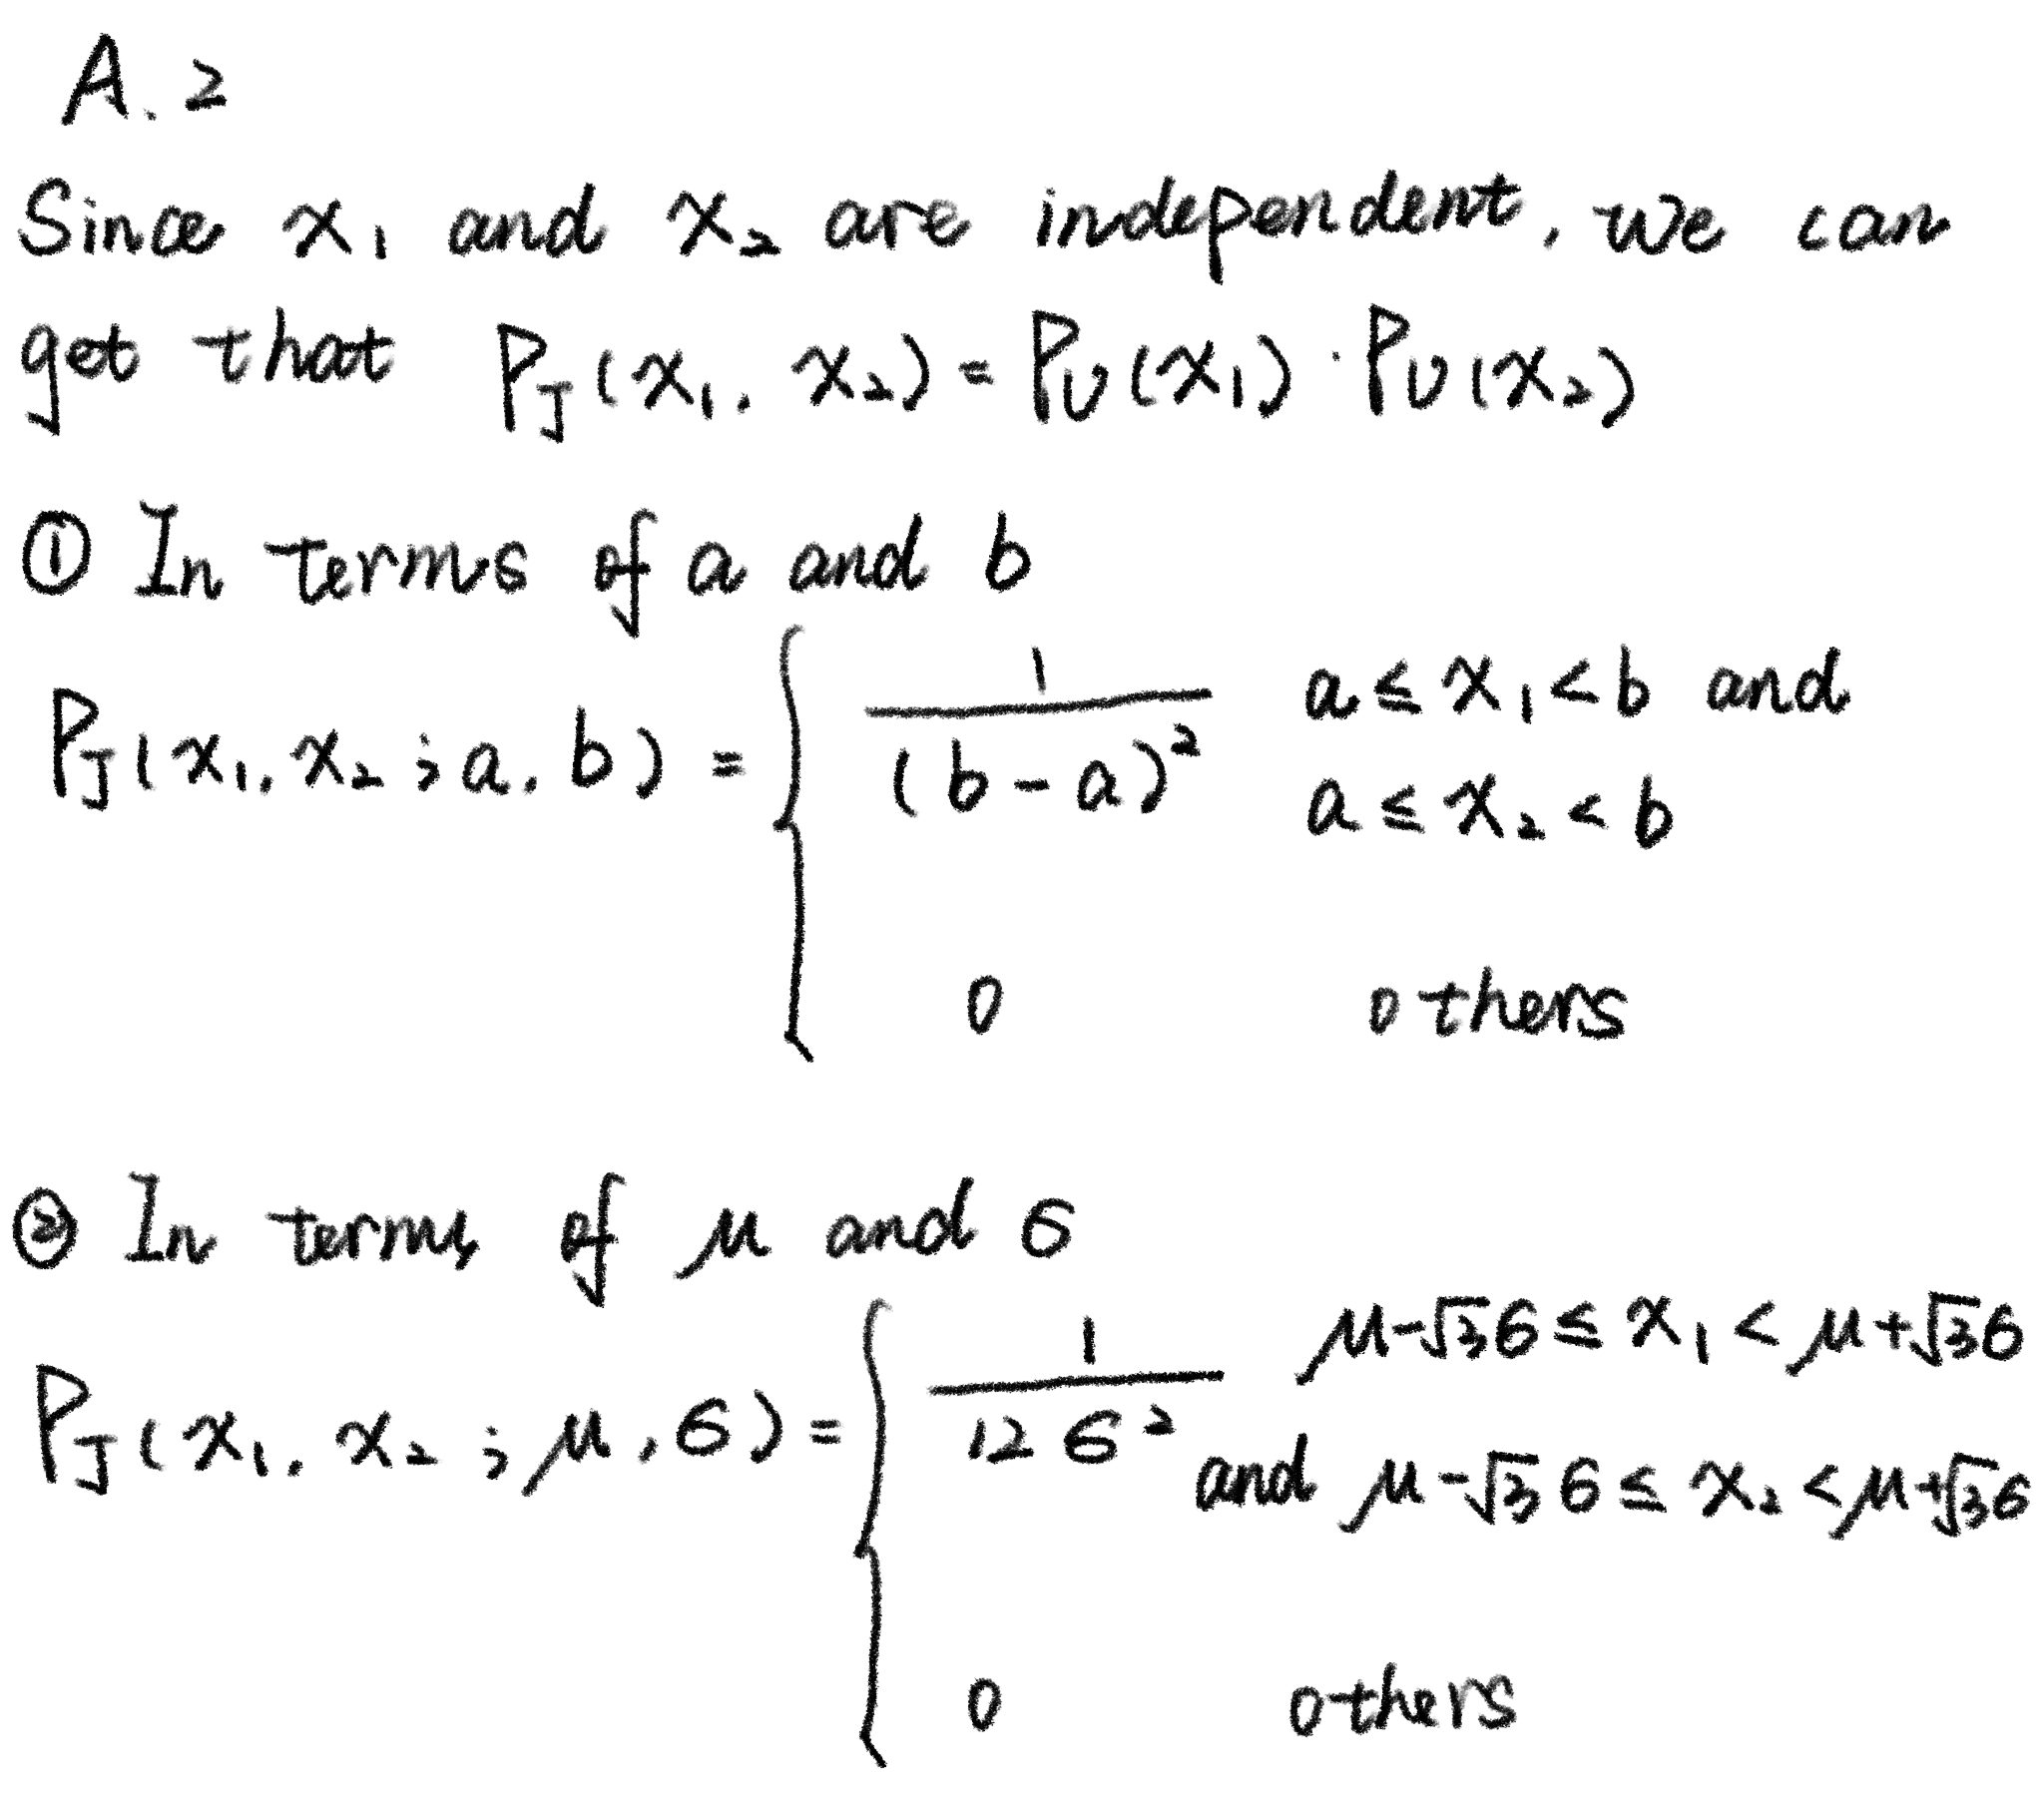 A.2
Since x₁ and x₂ are independent, we can
get that P_J(x₁, x₂) = P_U(x₁) · P_U(x₂)
① In terms of a and b
P_J(x₁, x₂; a, b) = { 1/(b-a)² a ≤ x₁ < b and
a ≤ x₂ < b
0 others
② In terms of μ and σ
P_J(x₁, x₂; μ, σ) = { 1/(12σ²) μ-√3σ ≤ x₁ < μ+√3σ
and μ-√3σ ≤ x₂ < μ+√3σ
0 others